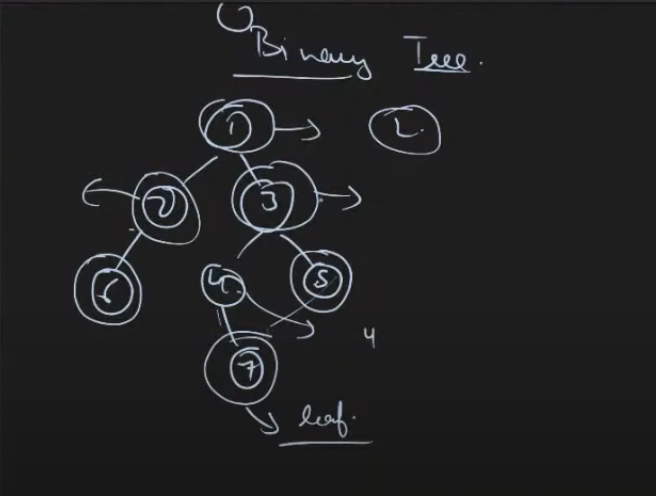 Binary Tree.
1
2.
2
3
6
4
5
4
7
leaf.